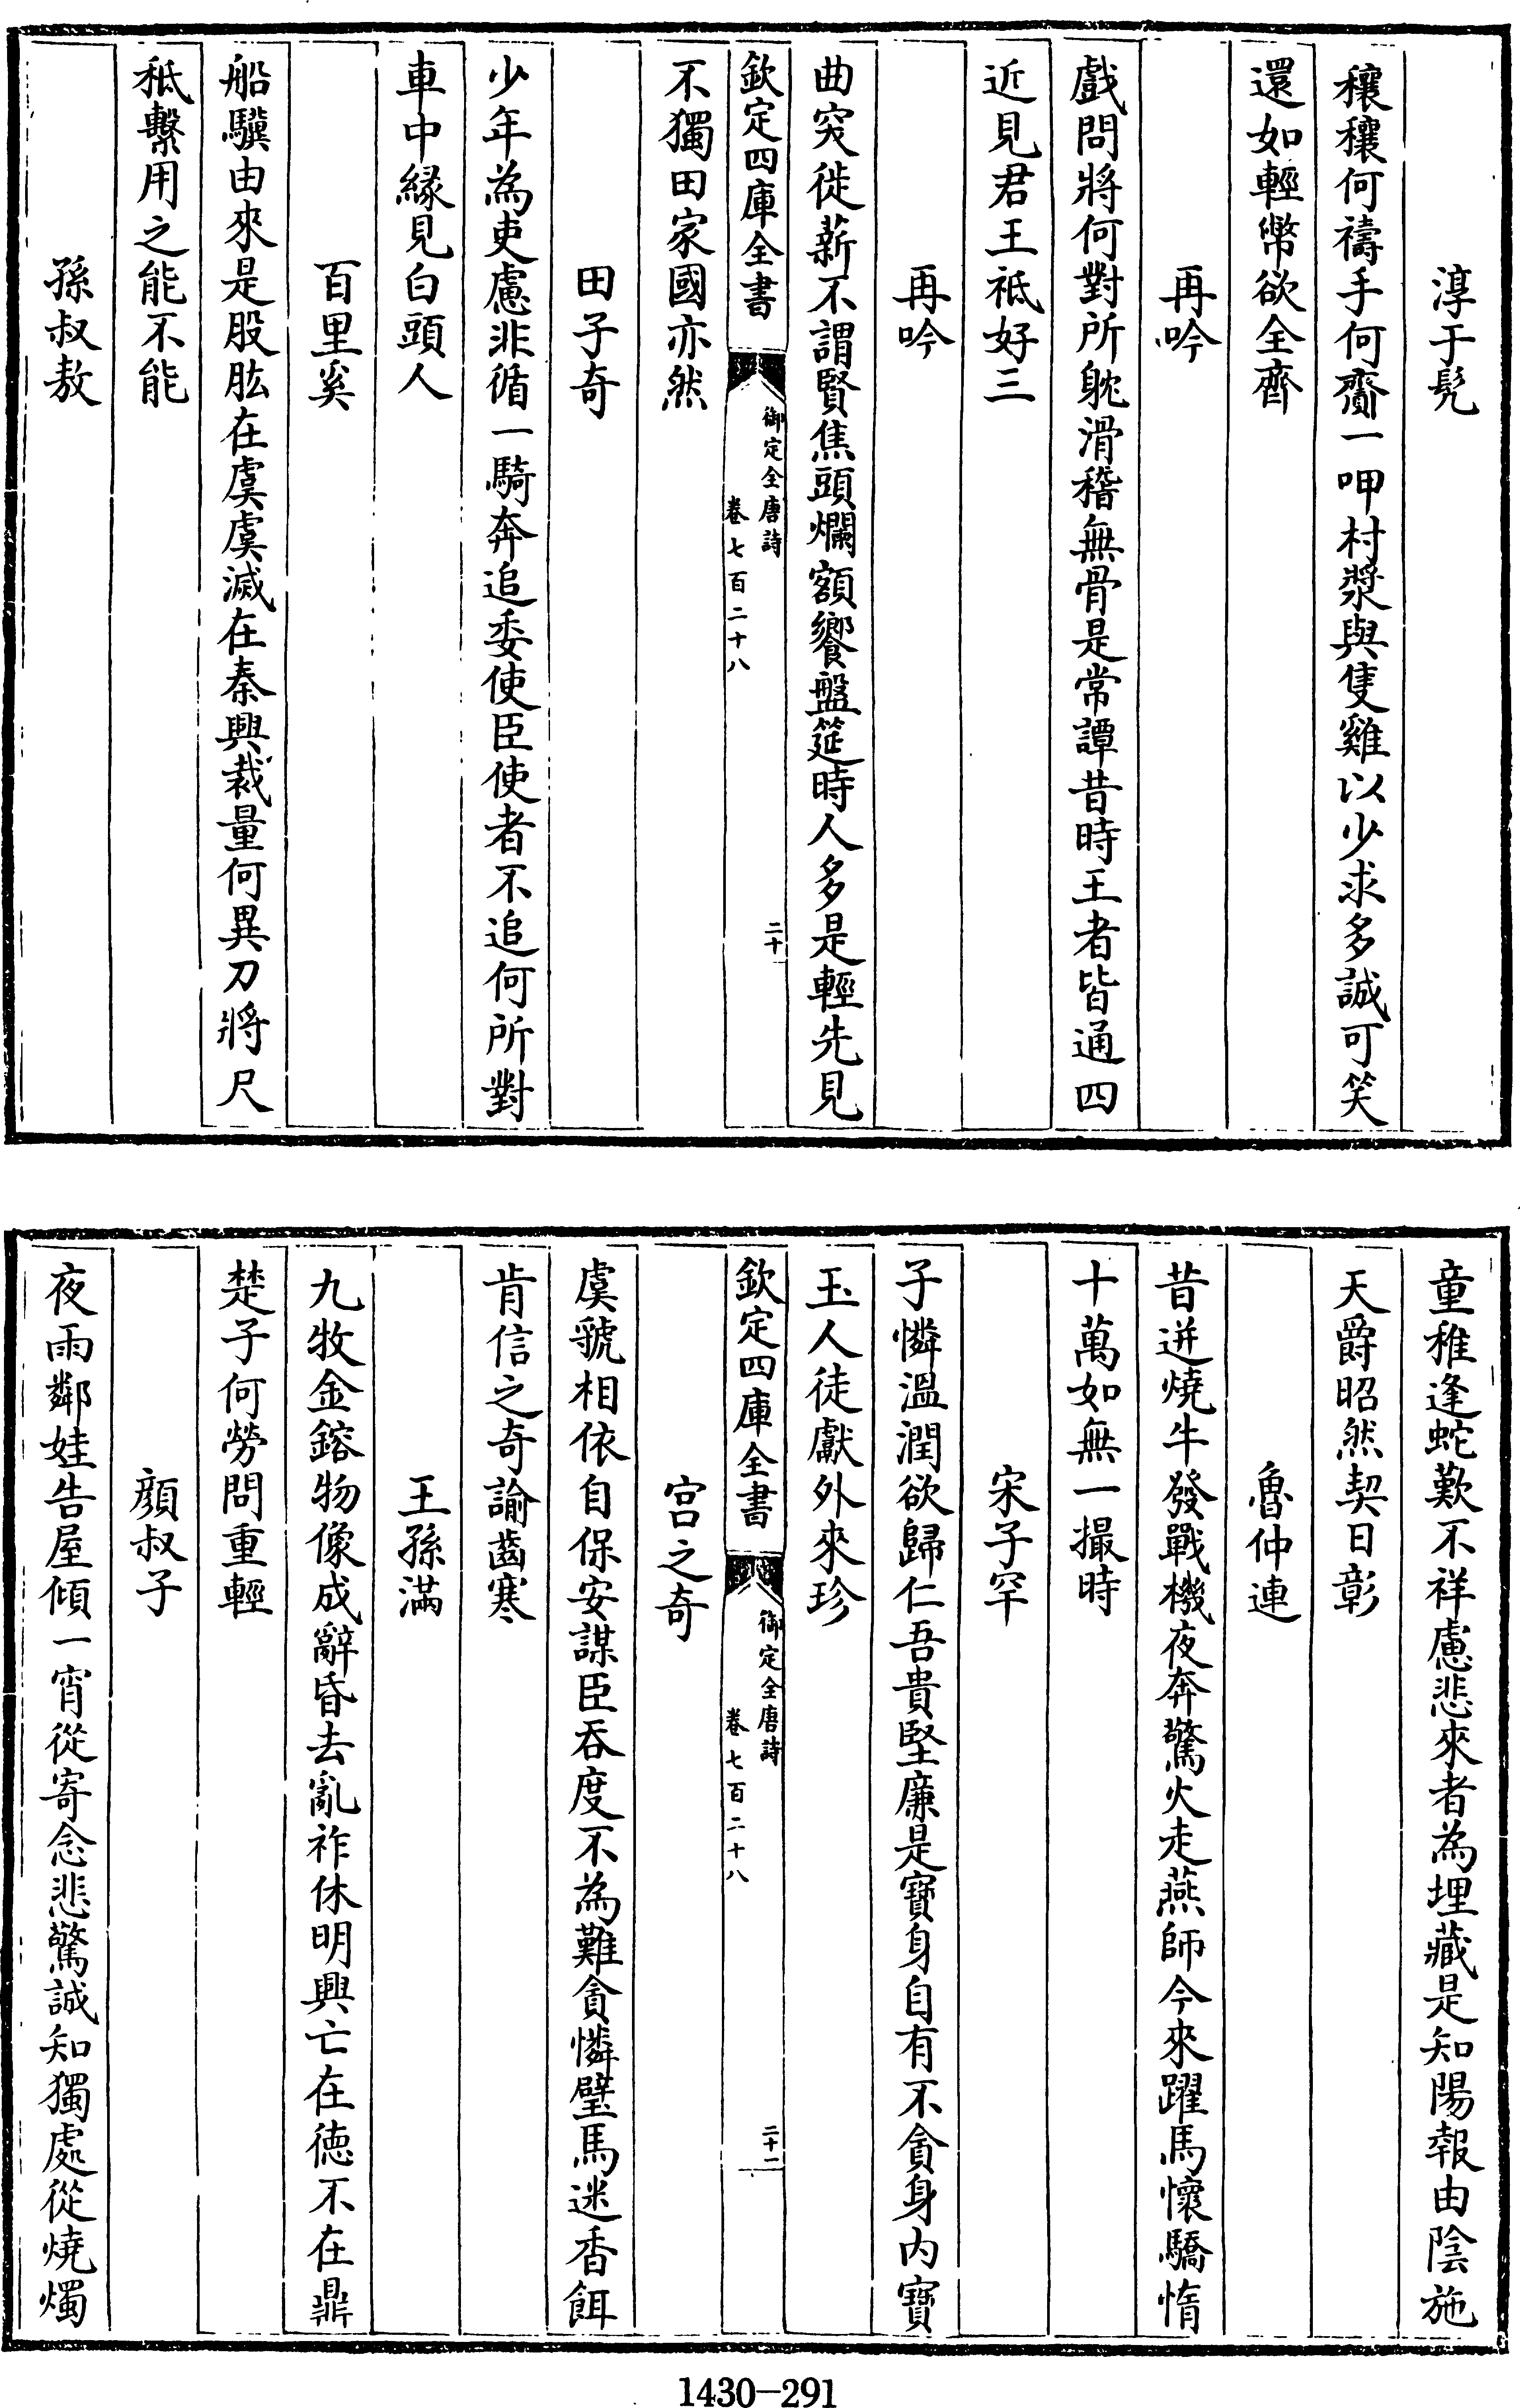 淳于髠
穰穰何禱手何齎一呷村漿與隻雞以少求多誠可笑
還如輕幣欲全齊
再吟
戲問將何對所躭滑稽無骨是常譚昔時王者皆通四
近見君王衹好三
再吟
曲突徙薪不謂賢焦頭爛額饗盤筵時人多是輕先見
欽定四庫全書
御定全唐詩
卷七百二十八
二十
不獨田家國亦然
田子奇
少年為吏慮非循一騎奔追委使臣使者不追何所對
車中緣見白頭人
百里奚
船驥由來是股肱在虞虞滅在秦興裁量何異刀將尺
秪繫用之能不能
孫叔敖
童稚逢蛇歎不祥慮悲來者為埋藏是知陽報由陰施
天爵昭然契日彰
魯仲連
昔迸燒牛發戰機夜奔驚火走燕師今來躍馬懷驕惰
十萬如無一撮時
宋子罕
子憐溫潤欲歸仁吾貴堅廉是寶身自有不貪身內寶
玉人徒獻外來珍
欽定四庫全書
御定全唐詩
卷七百二十八
二十一
宮之奇
虞虢相依自保安謀臣吞度不為難貪憐璧馬迷香餌
肯信之奇諭齒寒
王孫滿
九牧金鎔物像成辭昏去亂祚休明興亡在德不在鼎
楚子何勞問重輕
顏叔子
夜雨鄰娃告屋傾一宵從寄念悲驚誠知獨處從燒燭
1430-291